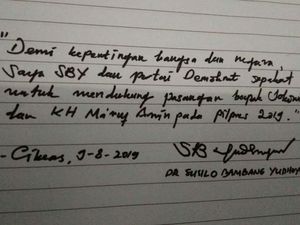 "Demi kepentingan bangsa dan negara,
Saya SBY dan partai Demokrat sepakat
untuk mendukung pasangan bapak Jokowi
dan KH Ma'ruf Amin pada pilpres 2019."
- Cikeas, 9-8-2019
SB Yudhoyono
DR SUSILO BAMBANG YUDHOYO